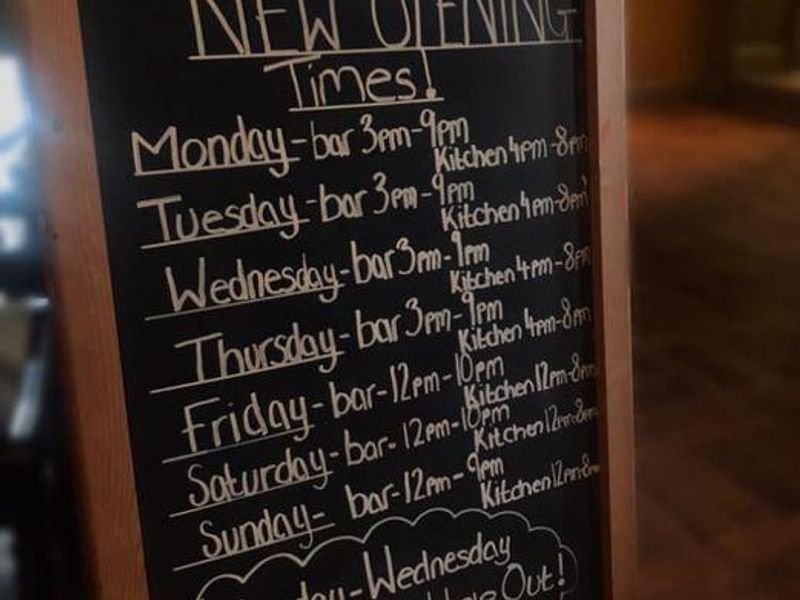 NEW OPENING
Times!
Monday-bar 3pm-9pm
Kitchen 4pm-8pm
Tuesday-bar 3pm-9pm
Kitchen 4pm-8pm
Wednesday-bar 3pm-9pm
Kitchen 4pm-8pm
Thursday-bar 3pm-9pm
Kitchen 4pm-8pm
Friday-bar-12pm-10pm
Kitchen 12pm-8pm
Saturday-bar-12pm-10pm
Kitchen 12pm-8pm
Sunday-bar-12pm-9pm
Kitchen 12pm-8pm
-Wednesday
Out!